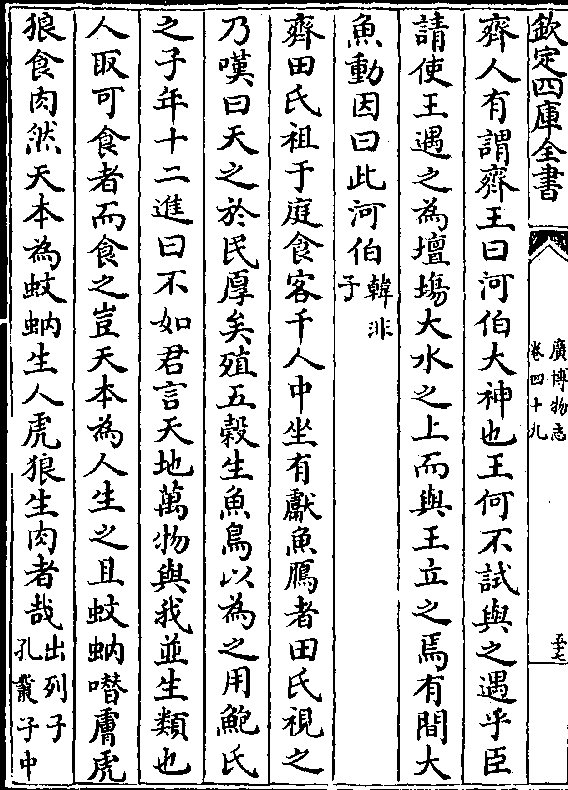 欽定四庫全書
廣博物志
卷四十九
齊人有謂齊王曰河伯大神也王何不試與之遇乎臣
請使王遇之為壇塲大水之上而與王立之焉有間大
魚動因曰此河伯韓非
子
齊田氏祖于庭食客千人中坐有獻魚鴈者田氏視之
乃嘆曰天之於民厚矣殖五榖生魚鳥以為之用鮑氏
之子年十二進曰不如君言天地萬物與我並生類也
人取可食者而食之豈天本為人生之且蚊蚋噆膚虎
狼食肉然天本為蚊蚋生人虎狼生肉者哉出列子
孔叢子中